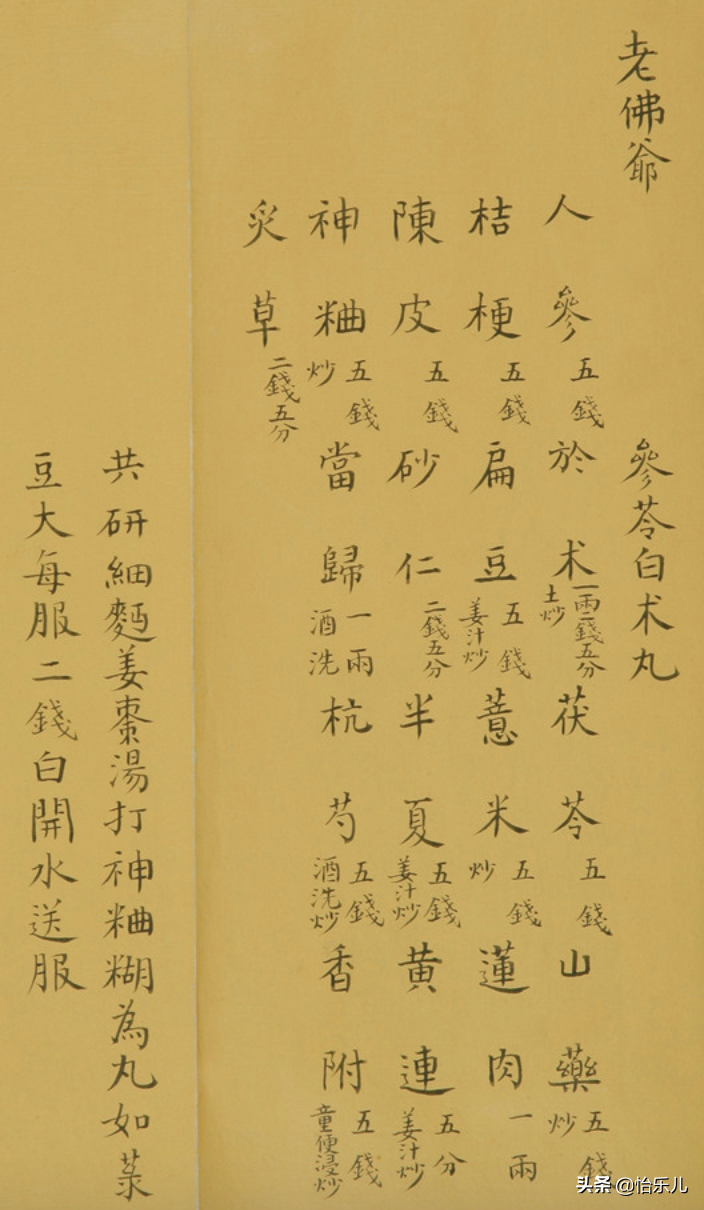 老佛爺
參苓白术丸
人參五錢 於术一兩二錢五分土炒 茯苓五錢 山藥五錢炒
桔梗五錢 扁豆五錢姜汁炒 薏米五錢炒 蓮肉一兩
陳皮五錢 砂仁二錢五分 半夏五錢姜汁炒 黄連五分姜汁炒
神粬五錢炒 當歸一兩酒洗 杭芍五錢酒洗炒 香附五錢童便浸炒
炙草二錢五分
共研細麪姜棗湯打神粬糊為丸如菉
豆大每服二錢白開水送服
头条 @怡乐儿